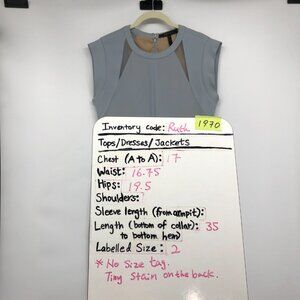 Inventory code: Ruth 1970
Tops/Dresses/Jackets
Chest (A to A): 17
Waist: 16.75
Hips: 19.5
Shoulders:
Sleeve length (from armpit):
Length (bottom of collar): 35
to bottom hem)
Labelled Size: 2
* No Size tag.
Tiny Stain on the back.